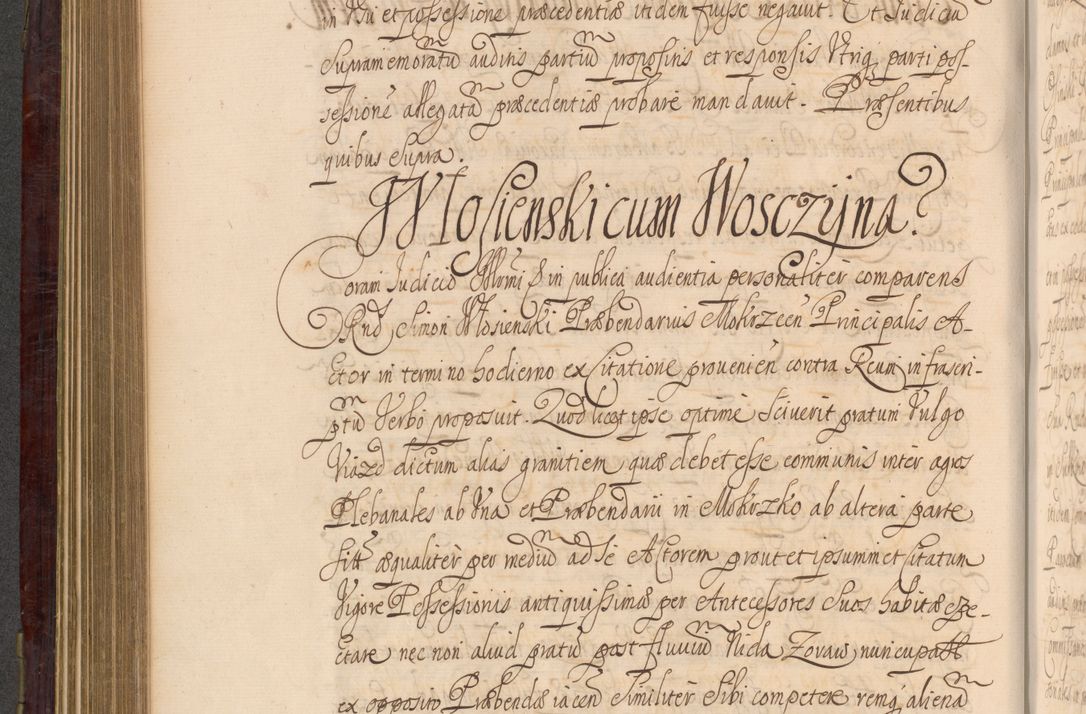 in Usu et possessione præcedentiæ itidem fuisse negavit. Et Judiciũ
Supramemoratũ auditis partiũ propositis et responsis Utriq parti pos-
sessionẽ allegatã præcedentiæ probare mandavit. Præsentibus
quibus Supra.
Wlosienski cum Wosczyna
Coram Judicio et in publica audientia personaliter comparens
Rnd Simon Wlosienski Præbendarius Mokrzceñ Principalis A-
ctor in termino hodierno ex Citatione provenieñ contra Reum infrascri-
ptũ Verbo proposuit. Quod licet ipse optime Sciverit pratum Vulgo
Viazd dictum alias granitiem quæ debet esse communis inter agros
Plebanales ab Una et Præbendarii in Mokrzko ab altera parte
sitt æqualiter per mediũ ad se Actorem prout et ipsummet Citatum
Vigore Possessionis antiquissimæ per Antecessores Suos habitæ spe-
ctare nec non aliud pratũ post fluviũ Nida Zoraw nuncupatt
ex opposito Præbendæ iaceñ Similiter Sibi competere remq alienã